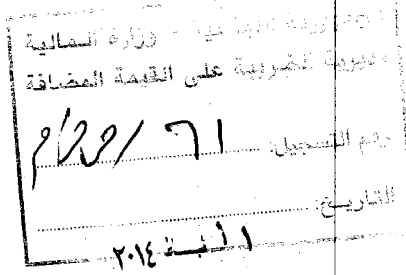 الجمهورية اللبنانية - وزارة المالية
مديرية الضريبة على القيمة المضافة
رقم التسجيل: ٦١ /
التاريخ:
٢٠١٤